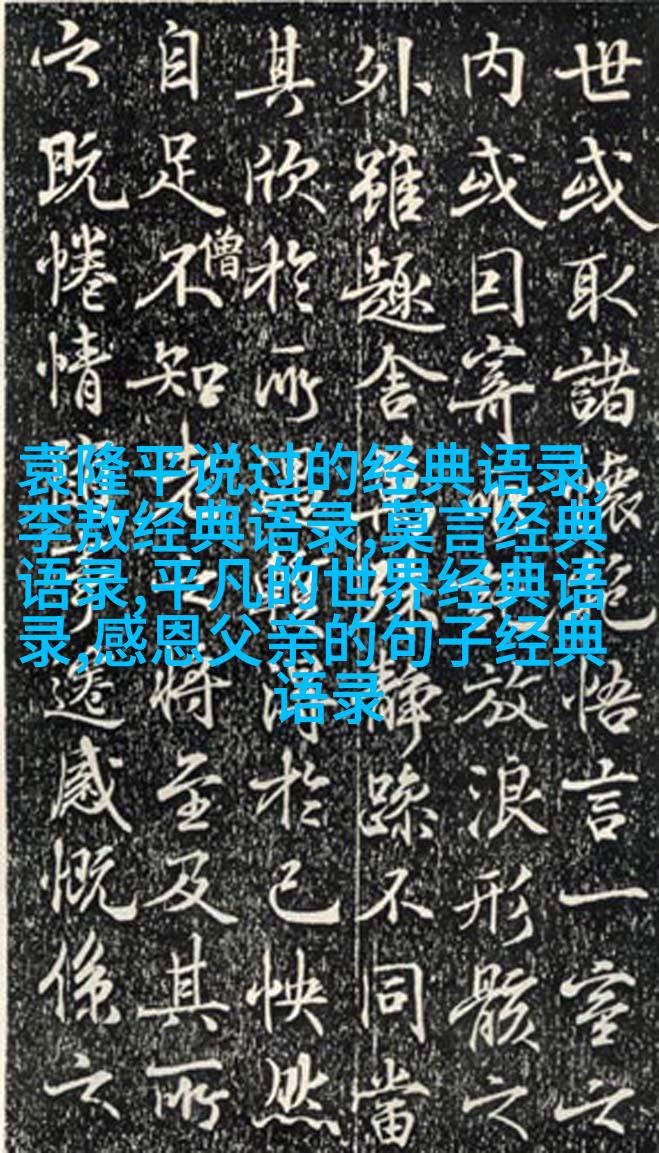 世或取諸懷抱悟言一室之
内或因寄所託放浪形骸之
外雖趣舍萬殊靜躁不同當
其欣於所遇暫得於己怏然
自足不知老之將至及其所
僧
之既惓情隨事遷感慨係之
袁隆平说过的经典语录,
李敖经典语录,莫言经典
语录,平凡的世界经典语
录,感恩父亲的句子经典
语录